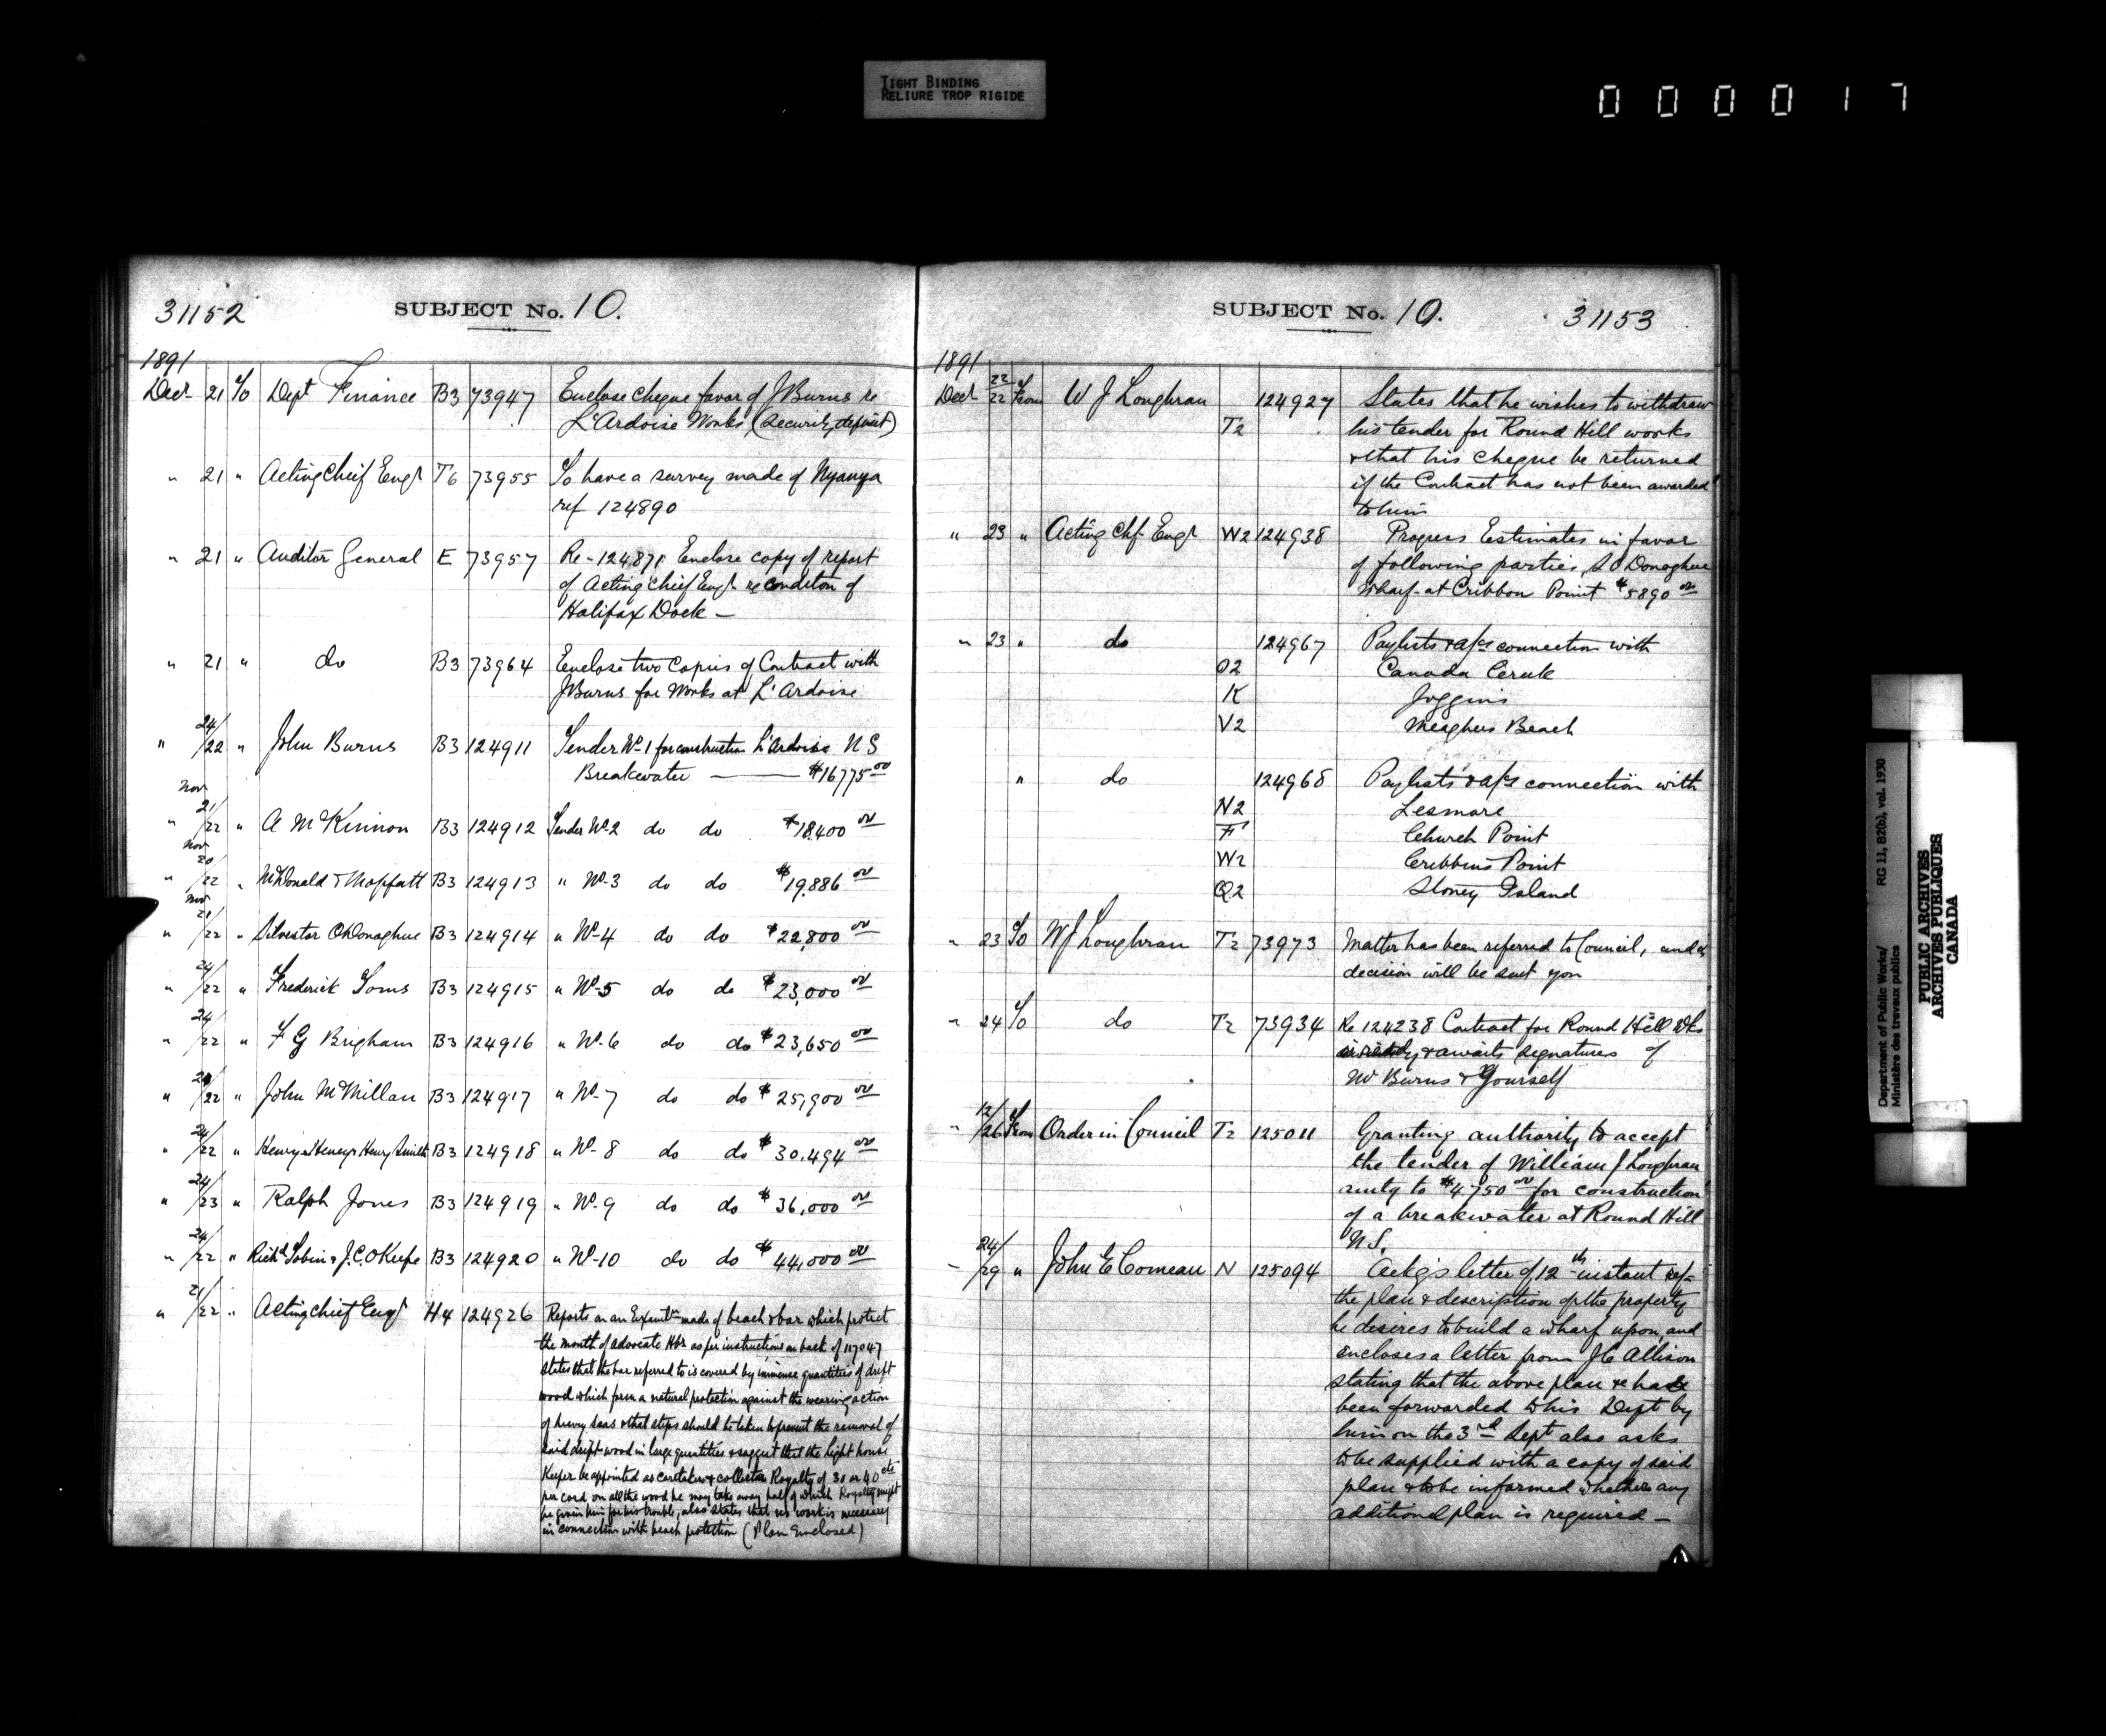 TIGHT BINDING
RELIURE TROP RIGIDE
000017
31152 SUBJECT No. 10.
1891
Decr 21 To Dept Finance B3 73947 Enclose cheque favor of J Burns re
L'Ardoise Works (security deposit)
" 21 " Acting Chief Engr T6 73955 To have a survey made of Nyanza
ref 124890
" 21 " Auditor General E 73957 Re - 124,871 Enclose copy of report
of Acting Chief Engr re condition of
Halifax Dock —
" 21 " do B3 73964 Enclose two copies of Contract with
J Burns for works at L'Ardoise
" 24/22 " John Burns B3 124911 Tender No 1 for construction L'Ardoise N S
Breakwater —— $16775 00
" Nov 21/22 " A McKinnon B3 124912 Tender No 2 do do $18,400 00
" Nov 20/22 " McDonald & Moffatt B3 124913 " No 3 do do $19,886 00
" Nov 21/22 " Silvester O'Donoghue B3 124914 " No 4 do do $22,800 00
" 24/22 " Frederick Toms B3 124915 " No 5 do do $23,000 00
" 24/22 " F G Brigham B3 124916 " No 6 do do $23,650 00
" 24/22 " John McMillan B3 124917 " No 7 do do $25,900 00
" 24/22 " Henry & Henry Smith B3 124918 " No 8 do do $30,494 00
" 24/23 " Ralph Jones B3 124919 " No 9 do do $36,000 00
" 24/22 " Richd Tobin & J.C. O'Keefe B3 124920 " No 10 do do $44,000 00
" 21/22 " Acting chief Engr H4 124926 Reports on an Examtn made of beach & bar which protect
the mouth of advocate Hbr as per instructions on back of 117047
states that the bar referred to is covered by immense quantities of drift
wood which form a natural protection against the wearing action
of heavy seas & that steps should be taken to prevent the removal of
said drift-wood in large quantities & suggest that the light house
Keeper be appointed as caretaker & collect a Royalty of 30 or 40 cts
per cord on all the wood he may take away half of which Royalty might
be given him for his trouble, also states that no work is necessary
in connection with beach protection (Plan Enclosed)
SUBJECT No. 10. 31153
1891
Decr 22/22 From W J Loughran T2 124927 States that he wishes to withdraw
his tender for Round Hill works
& that his cheque be returned
if the Contract has not been awarded
to him
" 23 " Acting Chf. Engr W2 124938 Progress Estimates in favor
of following parties, S O'Donoghue
Wharf at Cribbon Point $5890 00
" 23 " do 124967 Paylists & a/cs connection with
O2 Canada Creek
K Joggins
V2 Meaghers Beach
" do 124968 Paylists & a/cs connection with
N2 Lesmore
F Church Point
W2 Cribbins Point
Q2 Stoney Island
" 23 To W J Loughran T2 73973 Matter has been referred to Council, and a
decision will be sent you
" 24 To do T2 73934 Re 124238 Contract for Round Hill Wks
is ready & awaits signatures of
Mr Burns & Yourself
" 12/26 From Order in Council T2 125011 Granting authority to accept
the tender of William J Loughran
amtg to $4750 00 for construction
of a breakwater at Round Hill
N S.
" 24/29 " John E Comeau N 125094 Ackgs letter of 12th instant ref-
the plan & description of the property
he desires to build a wharf upon, and
encloses a letter from J C Allison
stating that the above plan & has
been forwarded to this Dept by
him on the 3rd Sept also asks
to be supplied with a copy of said
plan & to be informed whether any
additional plan is required —
Department of Public Works/ RG 11, B2(b), vol. 1930
Ministère des travaux publics
PUBLIC ARCHIVES
ARCHIVES PUBLIQUES
CANADA